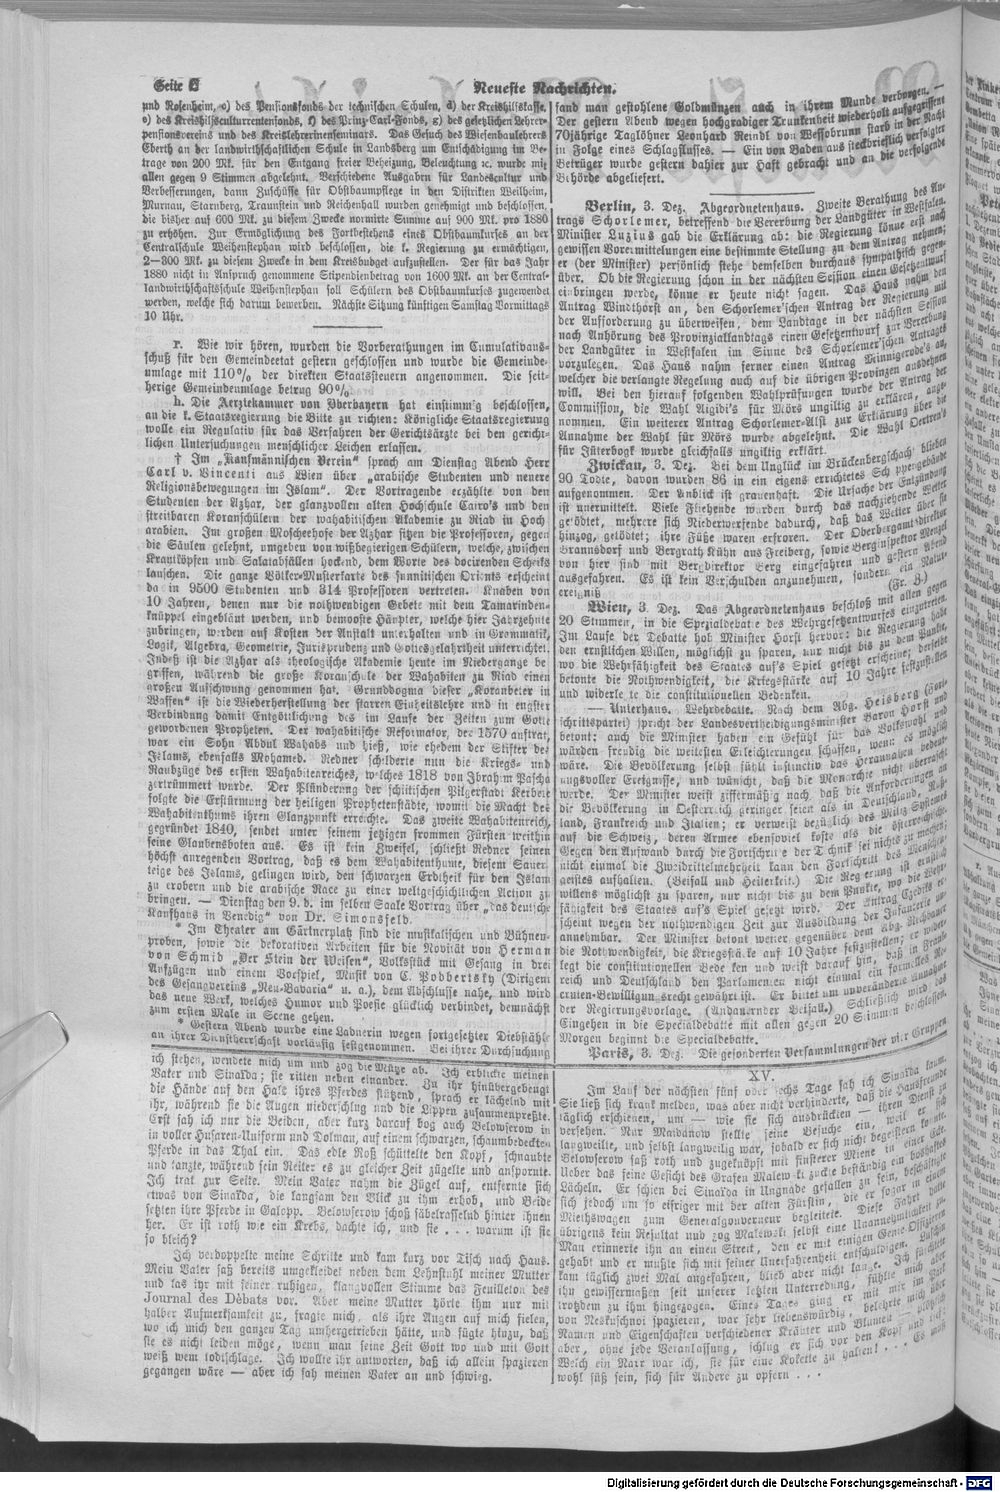 Seite
Neueste Nachrichten.
und Rosenheim, c) des Pensionsfonds der technischen Schulen, d) der Kreishilfskasse,
e) des Kreishilfsculturrentenfonds, f) des Prinz-Carl-Fonds, g) des gesetzlichen Lehrer-
pensionsvereins und des Kreislehrerinenseminars. Das Gesuch des Wiesenbaulehrers
Eberth an der landwirthschaftlichen Schule in Landsberg um Entschädigung im Be-
trage von 200 Mk. für den Entgang freier Beheizung, Beleuchtung ꝛc. wurde mit
allen gegen 9 Stimmen abgelehnt. Verschiedene Ausgaben für Landescultur und
Verbesserungen, dann Zuschüsse für Obstbaumpflege in den Distrikten Weilheim,
Murnau, Starnberg, Traunstein und Reichenhall wurden genehmigt und beschlossen,
die bisher auf 600 Mk. zu diesem Zwecke normirte Summe auf 900 Mk. pro 1880
zu erhöhen. Zur Ermöglichung des Fortbestehens eines Obstbaumkurses an der
Centralschule Weihenstephan wird beschlossen, die k. Regierung zu ermächtigen,
2—300 Mk. zu diesem Zwecke in dem Kreisbudget aufzustellen. Der für das Jahr
1880 nicht in Anspruch genommene Stipendienbetrag von 1600 Mk. an der Central-
landwirthschaftsschule Weihenstephan soll Schülern des Obstbaumkurses zugewendet
werden, welche sich darum bewerben. Nächste Sitzung künftigen Samstag Vormittags
10 Uhr.
r. Wie wir hören, wurden die Vorberathungen im Cumulativaus-
schuß für den Gemeindeetat gestern geschlossen und wurde die Gemeinde-
umlage mit 110% der direkten Staatssteuern angenommen. Die seit-
herige Gemeindeumlage betrug 90%.
h. Die Aerztekammer von Oberbayern hat einstimmig beschlossen,
an die k. Staatsregierung die Bitte zu richten: Königliche Staatsregierung
wolle ein Regulativ für das Verfahren der Gerichtsärzte bei den gericht-
lichen Untersuchungen menschlicher Leichen erlassen.
† Im „Kaufmännischen Verein“ sprach am Dienstag Abend Herr
Carl v. Vincenti aus Wien über „arabische Studenten und neuere
Religionsbewegungen im Islam“. Der Vortragende erzählte von den
Studenten der Azhar, der glanzvollen alten Hochschule Cairo's und den
streitbaren Koranschülern der wahabitischen Akademie zu Riad in Hoch
arabien. Im großen Moscheehofe der Azhar sitzen die Professoren, gegen
die Säulen gelehnt, umgeben von wißbegierigen Schülern, welche, zwischen
Krautköpfen und Salatabfällen hockend, dem Worte des docirenden Scheiks
lauschen. Die ganze Völker-Musterkarte des sunnitischen Orients erscheint
da in 9500 Studenten und 314 Professoren vertreten. Knaben von
10 Jahren, denen nur die nothwendigen Gebete mit dem Tamarinden-
knüppel eingebläut werden, und bemooste Häupter, welche hier Jahrzehnte
zubringen, werden auf Kosten der Anstalt unterhalten und in Grammatik,
Logik, Algebra, Geometrie, Jurisprudenz und Gottesgelahrtheit unterrichtet.
Indeß ist die Azhar als theologische Akademie heute im Niedergange be
griffen, während die große Koranschule der Wahabiten zu Riad einen
großen Aufschwung genommen hat. Grunddogma dieser „Koranbeter in
Waffen“ ist die Wiederherstellung der starren Einheitslehre und in engster
Verbindung damit Entgöttlichung des im Laufe der Zeiten zum Gotte
gewordenen Propheten. Der wahabitische Reformator, der 1570 auftrat,
war ein Sohn Abdul Wahabs und hieß, wie ehedem der Stifter des
Islams, ebenfalls Mohamed. Redner schilderte nun die Kriegs- und
Raubzüge des ersten Wahabitenreiches, welches 1818 von Ibrahim Pascha
zertrümmert wurde. Der Plünderung der schiitischen Pilgerstadt Kerbele
folgte die Erstürmung der heiligen Prophetenstädte, womit die Macht des
Wahabitenthums ihren Glanzpunkt erreichte. Das zweite Wahabitenreich,
gegründet 1840, sendet unter seinem jetzigen frommen Fürsten weithin
seine Glaubensboten aus. Es ist kein Zweifel, schließt Redner seinen
höchst anregenden Vortrag, daß es dem Wahabitenthume, diesem Sauer
teige des Islams, gelingen wird, den schwarzen Erdtheil für den Islam
zu erobern und die arabische Race zu einer weltgeschichtlichen Action zu
bringen. — Dienstag den 9. d. im selben Saale Vortrag über „das deutsche
Kaufhaus in Venedig“ von Dr. Simonsfeld.
* Im Theater am Gärtnerplatz sind die musikalischen und Bühnen-
proben, sowie die dekorativen Arbeiten für die Novität von Herman
von Schmid „Der Stein der Weisen“, Volksstück mit Gesang in drei
Aufzügen und einem Vorspiel, Musik von C. Podbertsky (Dirigent
des Gesangvereins „Neu-Bavaria“ u. a.), dem Abschlusse nahe, und wird
das neue Werk, welches Humor und Poesie glücklich verbindet, demnächst
zum ersten Male in Scene gehen.
* Gestern Abend wurde eine Ladnerin wegen fortgesetzter Diebstähle
an ihrer Dienstherrschaft vorläufig festgenommen. Bei ihrer Durchsuchung
fand man gestohlene Goldmünzen auch in ihrem Munde verborgen. —
Der gestern Abend wegen hochgradiger Trunkenheit wiederholt aufgegriffene
70jährige Taglöhner Leonhard Reindl von Wessobrunn starb in der Nacht
in Folge eines Schlagflusses. — Ein von Baden aus steckbrieflich verfolgter
Betrüger wurde gestern dahier zur Haft gebracht und an die verfolgende
Behörde abgeliefert.
Berlin, 3. Dez. Abgeordnetenhaus. Zweite Berathung des An-
trags Schorlemer, betreffend die Vererbung der Landgüter in Westfalen.
Minister Luzius gab die Erklärung ab: die Regierung könne erst nach
gewissen Vorermittelungen eine bestimmte Stellung zu dem Antrag nehmen;
er (der Minister) persönlich stehe demselben durchaus sympathisch gegen-
über. Ob die Regierung schon in der nächsten Session einen Gesetzentwurf
einbringen werde, könne er heute nicht sagen. Das Haus nahm den
Antrag Windthorst an, den Schorlemer'schen Antrag der Regierung mit
der Aufforderung zu überweisen, dem Landtage in der nächsten Session
nach Anhörung des Provinziallandtags einen Gesetzentwurf zur Vererbung
der Landgüter in Westfalen im Sinne des Schorlemer'schen Antrages
vorzulegen. Das Haus nahm ferner einen Antrag Minnigerode's an,
welcher die verlangte Regelung auch auf die übrigen Provinzen ausdehnen
will. Bei den hierauf folgenden Wahlprüfungen wurde der Antrag der
Commission, die Wahl Aigidi's für Mörs ungiltig zu erklären, ange-
nommen. Ein weiterer Antrag Schorlemer-Alst zur Erklärung über die
Annahme der Wahl für Mörs wurde abgelehnt. Die Wahl Oertret's
für Jüterbogk wurde gleichfalls ungiltig erklärt.
Zwickau, 3. Dez. Bei dem Unglück im Brückenbergschacht blieben
90 Todte, davon wurden 86 in ein eigens errichtetes Schuppengebäude
aufgenommen. Der Anblick ist grauenhaft. Die Ursache der Entzündung
ist unermittelt. Viele Fliehende wurden durch das nachziehende Wetter
getödtet, mehrere sich Niederwerfende dadurch, daß das Wetter über sie
hinzog, getödtet; ihre Füße waren erfroren. Der Oberbergamtsdirektor
Braunsdorf und Bergrath Kühn aus Freiberg, sowie Berginspektor Menzel
von hier sind mit Bergdirektor Berg eingefahren und gestern Abend
ausgefahren. Es ist kein Verschulden anzunehmen, sondern ein Natur-
ereigniß. (Fr. Z.)
Wien, 3. Dez. Das Abgeordnetenhaus beschloß mit allen gegen
20 Stimmen, in die Spezialdebatte des Wehrgesetzentwurfes einzutreten.
Im Laufe der Debatte hob Minister Horst hervor: die Regierung hege
den ernstlichen Willen, möglichst zu sparen, nur nicht bis zu dem Punkte,
wo die Wehrfähigkeit des Staates auf's Spiel gesetzt erscheine; derselbe
betonte die Nothwendigkeit, die Kriegsstärke auf 10 Jahre festzustellen
und widerlegte die constitutionellen Bedenken.
— Unterhaus. Wehrdebatte. Nach dem Abg. Heisberg (Fort-
schrittspartei) spricht der Landesvertheidigungsminister Baron Horst und
betont: auch die Minister haben ein Gefühl für das Volkswohl und
würden freudig die weitesten Erleichterungen schaffen, wenn es möglich
wäre. Die Bevölkerung selbst fühlt instinctiv das Herannahen bedeut-
ungsvoller Ereignisse, und wünscht, daß die Monarchie nicht überrascht
werde. Der Minister weist ziffermäßig nach, daß die Anforderungen an
die Bevölkerung in Oesterreich geringer seien als in Deutschland, Ruß-
land, Frankreich und Italien; er verweist bezüglich des Miliz-Systemes
auf die Schweiz, deren Armee ebensoviel koste als die österreichische.
Gegen den Aufwand durch die Fortschritte der Technik sei nichts zu machen;
nicht einmal die Zweidrittelmehrheit kann den Fortschritt des Menschen-
geistes aufhalten. (Beifall und Heiterkeit.) Die Regierung ist ernstlich
willens möglichst zu sparen, nur nicht bis zu dem Punkte, wo die Wehr-
fähigkeit des Staates auf's Spiel gesetzt wird. Der Antrag Czediks er-
scheint wegen der nothwendigen Zeit zur Ausbildung der Infanterie un-
annehmbar. Der Minister betont weiter gegenüber dem Abg. Rechbauer
die Nothwendigkeit, die Kriegsstärke auf 10 Jahre festzustellen; er wider-
legt die constitutionellen Bedenken und weist darauf hin, daß in Frank-
reich und Deutschland den Parlamenten nicht einmal ein formelles Re-
cruten-Bewilligungsrecht gewährt ist. Er bittet um unveränderte Annahme
der Regierungsvorlage. (Andauernder Beifall.) Schließlich wird das
Eingehen in die Specialdebatte mit allen gegen 20 Stimmen beschlossen.
Morgen beginnt die Specialdebatte.
Paris, 3. Dez. Die gesonderten Versammlungen der vier Gruppen
ich stehen, wendete mich um und zog die Mütze ab. Ich erblickte meinen
Vater und Sinaïda; sie ritten neben einander. Zu ihr hinübergebeugt
die Hände auf den Hals ihres Pferdes stützend, sprach er lächelnd mit
ihr, während sie die Augen niederschlug und die Lippen zusammenpreßte.
Erst sah ich nur die Beiden, aber kurz darauf bog auch Belowserow in
in voller Husaren-Uniform und Dolman, auf einem schwarzen, schaumbedeckten
Pferde in das Thal ein. Das edle Roß schüttelte den Kopf, schnaubte
und tanzte, während sein Reiter es zu gleicher Zeit zügelte und anspornte.
Ich trat zur Seite. Mein Vater nahm die Zügel auf, entfernte sich
etwas von Sinaïda, die langsam den Blick zu ihm erhob, und Beide
setzten ihre Pferde in Galopp. Belowserow schoß säbelrasselnd hinter ihnen
her. Er ist roth wie ein Krebs, dachte ich, und sie . . . warum ist sie
so bleich?
Ich verdoppelte meine Schritte und kam kurz vor Tisch nach Haus.
Mein Vater saß bereits umgekleidet neben dem Lehnstuhl meiner Mutter
und las ihr mit seiner ruhigen, klangvollen Stimme das Feuilleton des
Journal des Débats vor. Aber meine Mutter hörte ihm nur mit
halber Aufmerksamkeit zu, fragte mich, als ihre Augen auf mich fielen,
wo ich mich den ganzen Tag umhergetrieben hätte, und fügte hinzu, daß
sie es nicht leiden möge, wenn man seine Zeit Gott wo und mit Gott
weiß wem todtschlage. Ich wollte ihr antworten, daß ich allein spazieren
gegangen wäre — aber ich sah meinen Vater an und schwieg.
XV.
Im Lauf der nächsten fünf oder sechs Tage sah ich Sinaïda kaum.
Sie ließ sich krank melden, was aber nicht verhinderte, daß die Hausfreunde
täglich erschienen, um — wie sie sich ausdrückten — ihren Dienst zu
versehen. Nur Maidanow stellte seine Besuche ein, weil er sich
langweilte, und selbst langweilig war, sobald er sich nicht begeistern konnte.
Belowserow saß roth und zugeknöpft mit finsterer Miene in einer Ecke.
Ueber das feine Gesicht des Grafen Malewski zuckte beständig ein boshaftes
Lächeln. Er schien bei Sinaïda in Ungnade gefallen zu sein, beschäftigte
sich jedoch um so eifriger mit der alten Fürstin, die er sogar in einem
Miethswagen zum Generalgouverneur begleitete. Diese Fahrt hatte
übrigens kein Resultat und zog Malewski selbst eine Unannehmlichkeit zu.
Man erinnerte ihn an einen Streit, den er mit einigen Genie-Offizieren
gehabt und er mußte sich mit seiner Unerfahrenheit entschuldigen. Luschin
kam täglich zwei Mal angefahren, blieb aber nicht lange. Ich fürchtete
ihn gewissermaßen seit unserer letzten Unterredung, fühlte mich aber
trotzdem zu ihm hingezogen. Eines Tages ging er mit mir im Park
von Neskuschnoi spazieren, war sehr liebenswürdig, belehrte mich über
Namen und Eigenschaften verschiedener Kräuter und Blumen — plötzlich
aber, ohne jede Veranlassung, schlug er sich vor den Kopf und rief:
Welch ein Narr war ich, sie für eine Kokette zu halten! . . . Es muß
wohl süß sein, sich für Andere zu opfern . . .
Digitalisierung gefördert durch die Deutsche Forschungsgemeinschaft - DFG